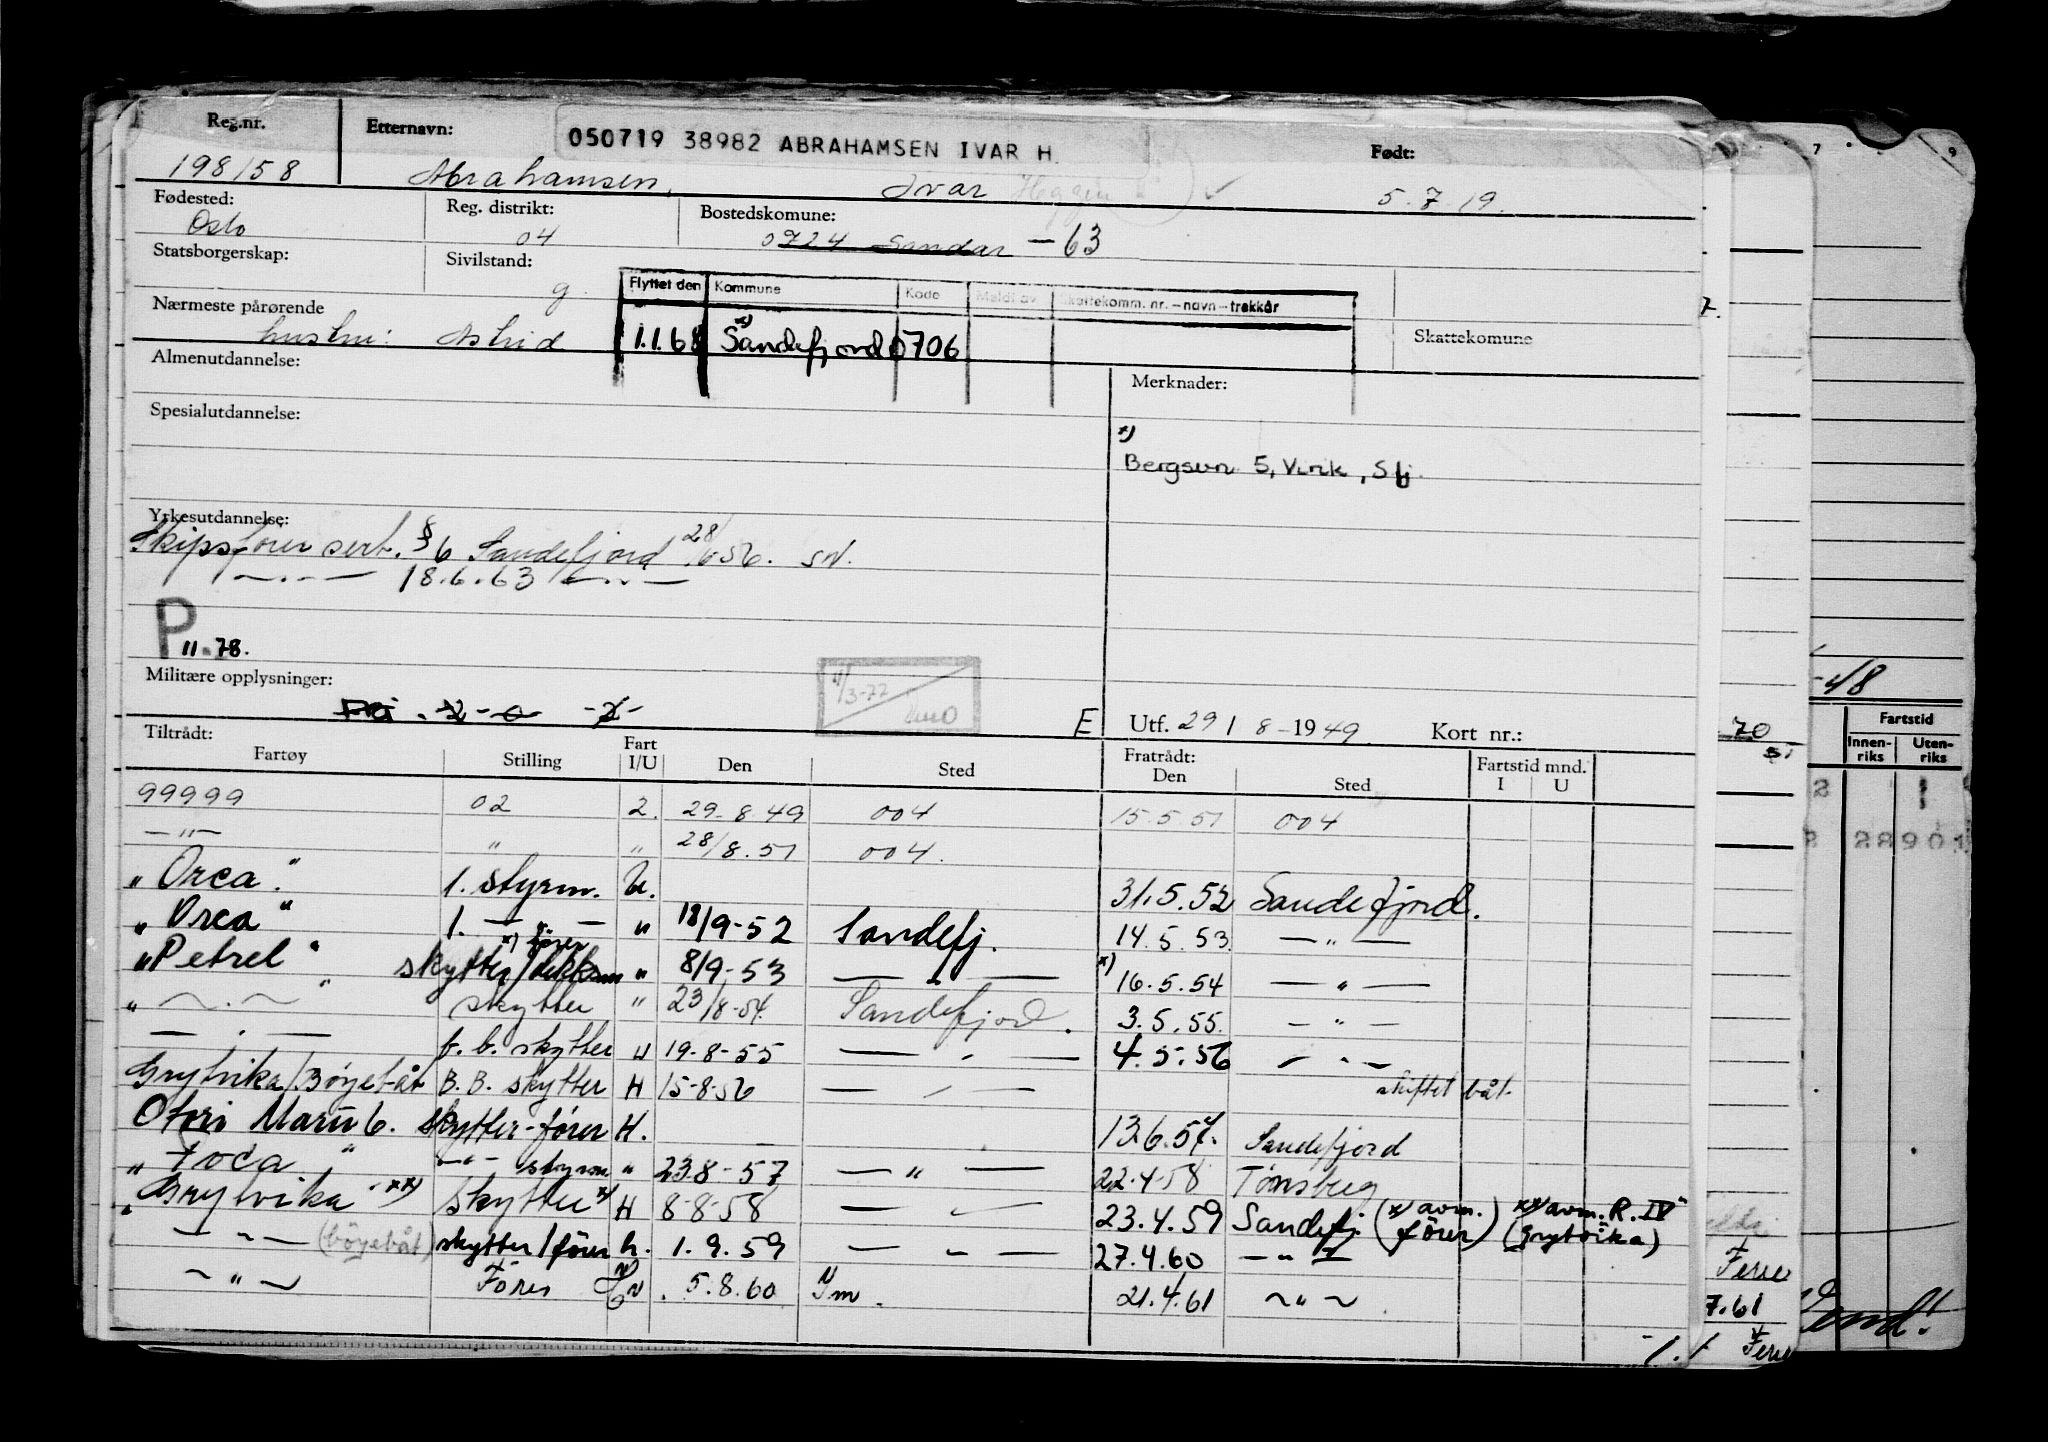 Reg.nr. Etternavn: 050719 38982 ABRAHAMSEN IVAR H. Født:
198/58 Abrahamsen, Ivar Heggin 5.7.19.
Fødested: Reg. distrikt: Bostedskomune:
Oslo 04 0724 Sandar - 63
Statsborgerskap: Sivilstand:
g.
Flyttet den Kommune Kode Meldt av Skattekomm. nr. - navn - trekkår
Nærmeste pårørende
hustru: Astrid 1.1.68 x) Sandefjord 0706 Skattekomune
Almenutdannelse: Merknader:
Spesialutdannelse:
x)
Bergsvn 5, Virik, Sfj.
Yrkesutdannelse:
Skipsfører sert. § 6 Sandefjord 28/6 56. sN.
— " — 18.6.63 — " —
P
11.78.
Militære opplysninger:
1/3-77
E Utf. 29 / 8 - 1949. Kort nr.:
Tiltrådt: Fratrådt:
Fartøy Stilling Fart I/U Den Sted Den Sted Fartstid mnd. I U
99999 02 2. 29.8.49 004 15.5.51 004
— " — " " 28/8.51 004.
"Orca". 1. styrm. U. 31.5.52 Sandefjord.
"Orca" 1. — " — " 18/9-52 Sandefj. 14.5.53. — " —
"Petrel" skytter/ x) fører " 8/9-53 — " — x) 16.5.54 — " —
" — " — " skytter " 23/8-54. Sandefjord. 3.5.55. — " —
— " — b.b. skytter U 19-8-55 — " — 4.5.56 — " —
Grytvika/Bøyebåt B.B. skytter H 15-8-56 — " — skiftet båt.
Otori Maru 6. skytter-fører H. 13.6.57. Sandefjord
"Foca" — " — styrm " 23.8-57 — " — 22.4.58 Tønsberg
"Grytvika" xx) skytter x) H 8-8-58 — " — 23.4.59 Sandefj. (x) avm. fører) xx) avm. R. IV" (Grytvika)
— " — (bøyebåt) skytter/fører h. 1.9.59 — " — 27.4.60 — " —
— " — Fører 5.8.60 Tm. 21.4.61 — " —
7 9
-48
70
Fartstid
Innen-riks Uten-riks
2 1
2 28901
Ferie
7.61
Ferie